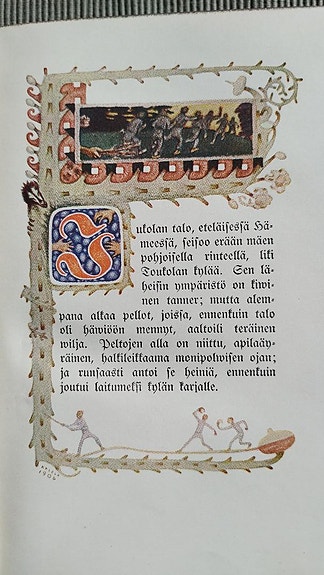 Jukolan talo, eteläisessä Hä-
meessä, seisoo erään mäen
pohjoisella rinteellä, liki
Toukolan kylää. Sen lä-
heisin ympäristö on kiwi-
nen tanner; mutta alem-
pana alkaa pellot, joissa, ennenkuin talo
oli häwiöön mennyt, aaltoili teräinen
wilja. Peltojen alla on niittu, apilaäy-
räinen, halkileikkaama monipolwisen ojan;
ja runsaasti antoi se heiniä, ennenkuin
joutui laitumeksi kylän karjalle.